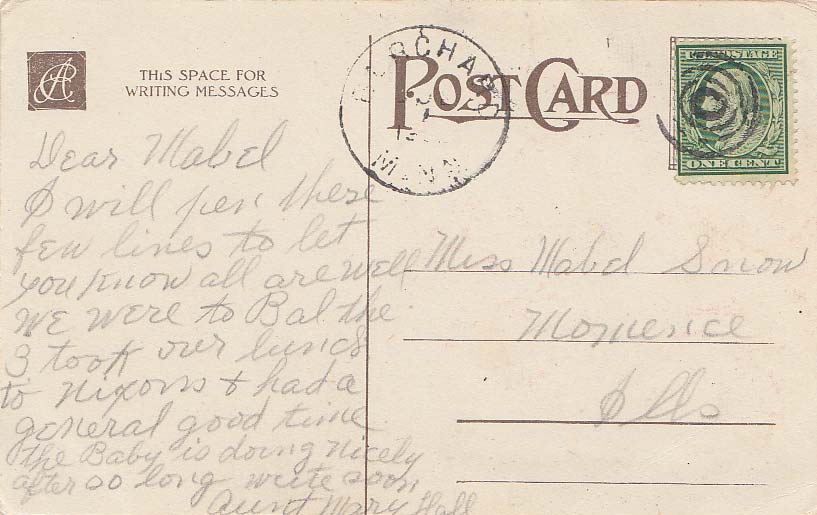 THIS SPACE FOR
WRITING MESSAGES
POST CARD
MINN
POSTAGE
ONE CENT
Dear Mabel
I will pen these
few lines to let
you know all are well
we were to Bal the
3 took our lunch
to Nixons & had a
general good time
the Baby is doing nicely
after so long write soon
Aunt Mary Hall
Miss Mabel Snow
Momence
Ills